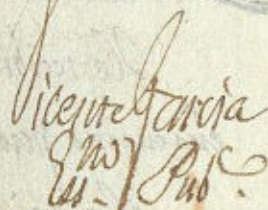 Vicente Garcia
Essno Pubco.